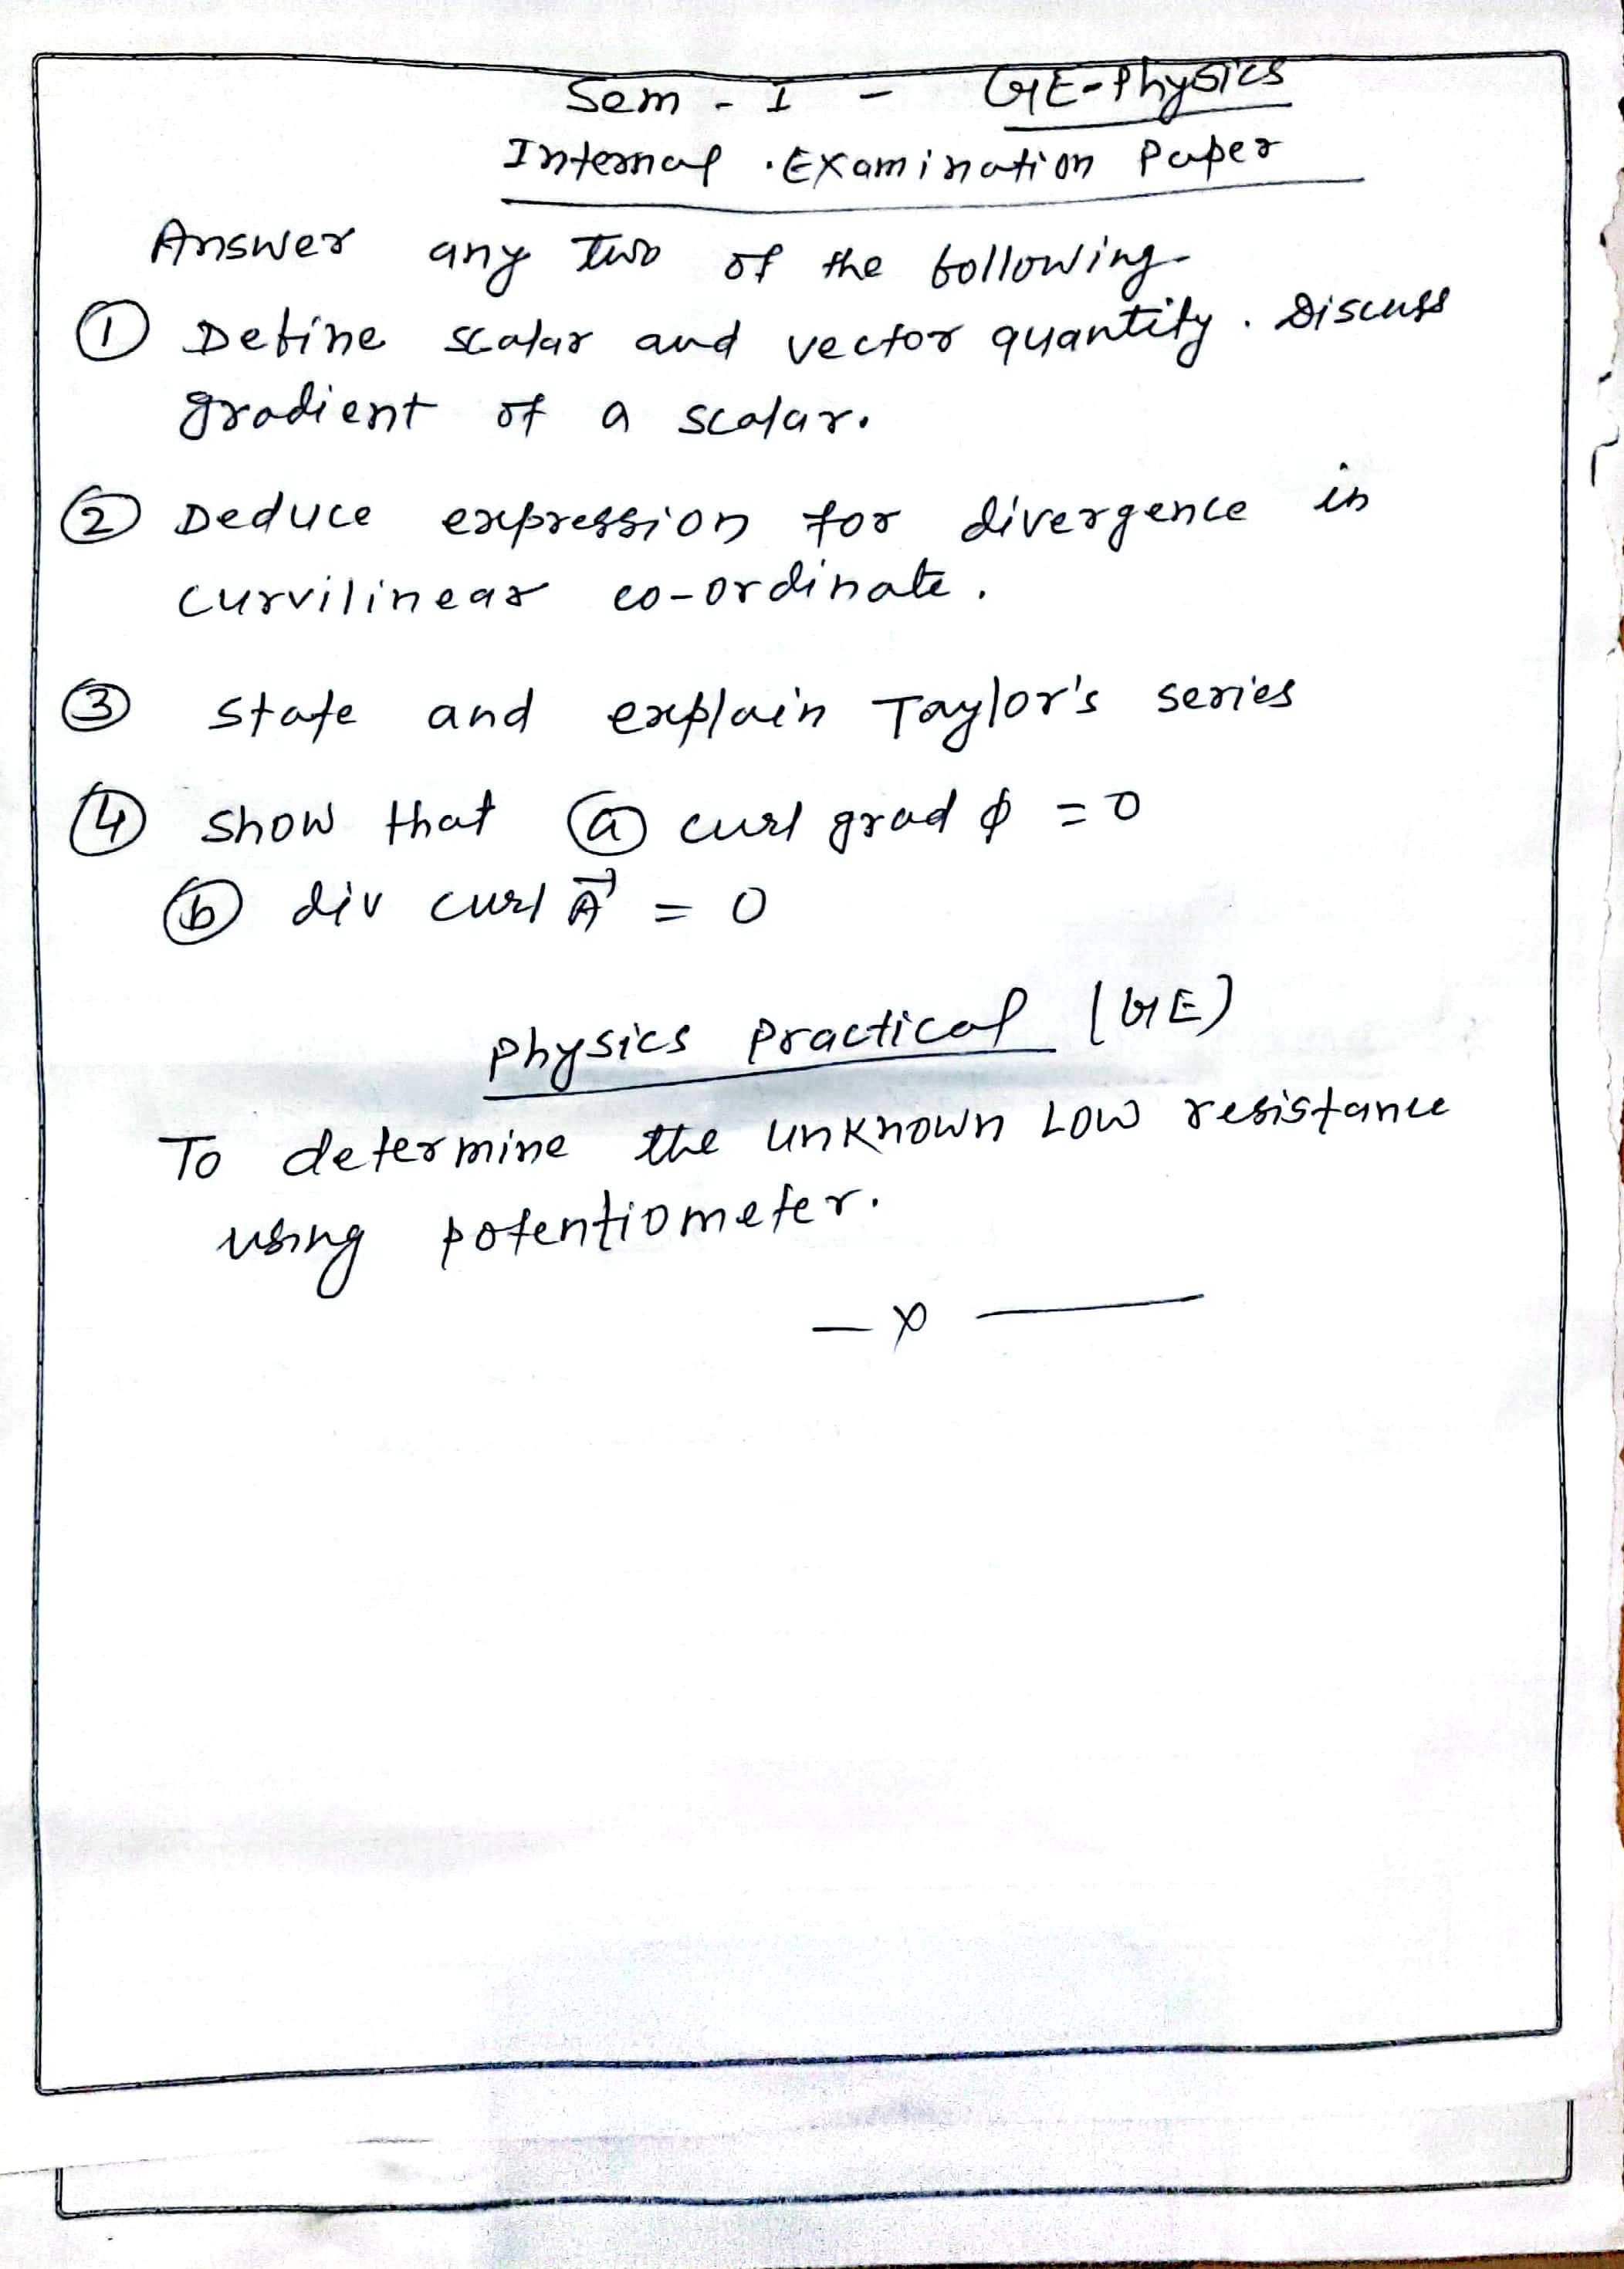 Sem - I - GE-Physics
Internal Examination Paper
Answer any two of the following
① Define scalar and vector quantity. Discuss
gradient of a scalar.
② Deduce expression for divergence in
curvilinear co-ordinate.
③ State and explain Taylor's series
④ Show that ⓐ curl grad ϕ = 0
ⓑ div curl A⃗ = 0
Physics Practical (GE)
To determine the unknown Low resistance
using potentiometer.
— x —